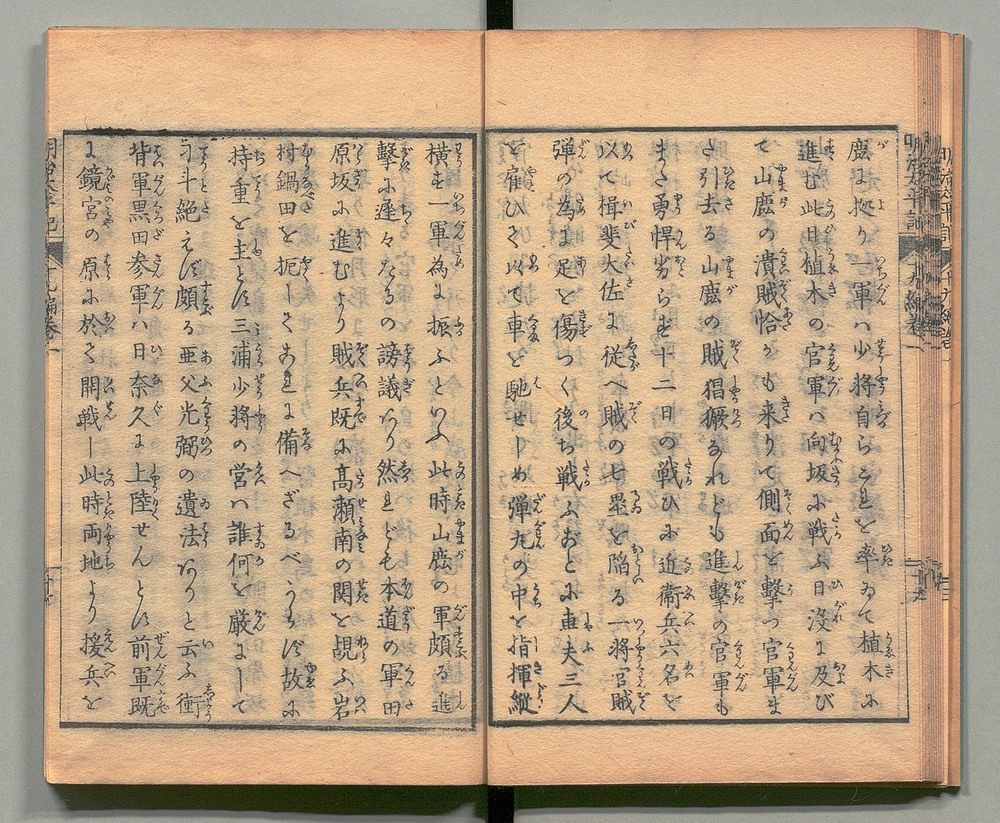 鹿に拠り一軍ハ少将自らこれを率ゐて植木に
進む此日植木の官軍ハ向坂に戦ふ日没に及び
て山鹿の潰賊恰かも来りて側面を撃つ官軍ま
さに引去る山鹿の賊猖獗なれども進撃の官軍も
また勇悍劣らず十二日の戦ひに近衛兵六名を
以て揖斐大佐に従へ賊の七塁を陥る一将官賊
弾の為に足を傷つく後ち戦ふごとに車夫三人
を雇ひて以て車を馳せしめ弾丸の中を指揮縦
横す一軍為に振ふといふ此時山鹿の軍頗る進
撃に遅々たるの謗議あり然れども本道の軍田
原坂に進むより賊兵既に高瀬南の関を覘ふ岩
村鍋田を扼してこれに備へざるべからず故に
持重を主とす三浦少将の営ハ誰何を厳にして
刁斗絶えず頗る亜父光弼の遺法ありと云ふ衝
背軍黒田参軍ハ日奈久に上陸せんとす前軍既
に鏡宮の原に於て開戦し此時両地より援兵を
明治太平記
十九編巻一